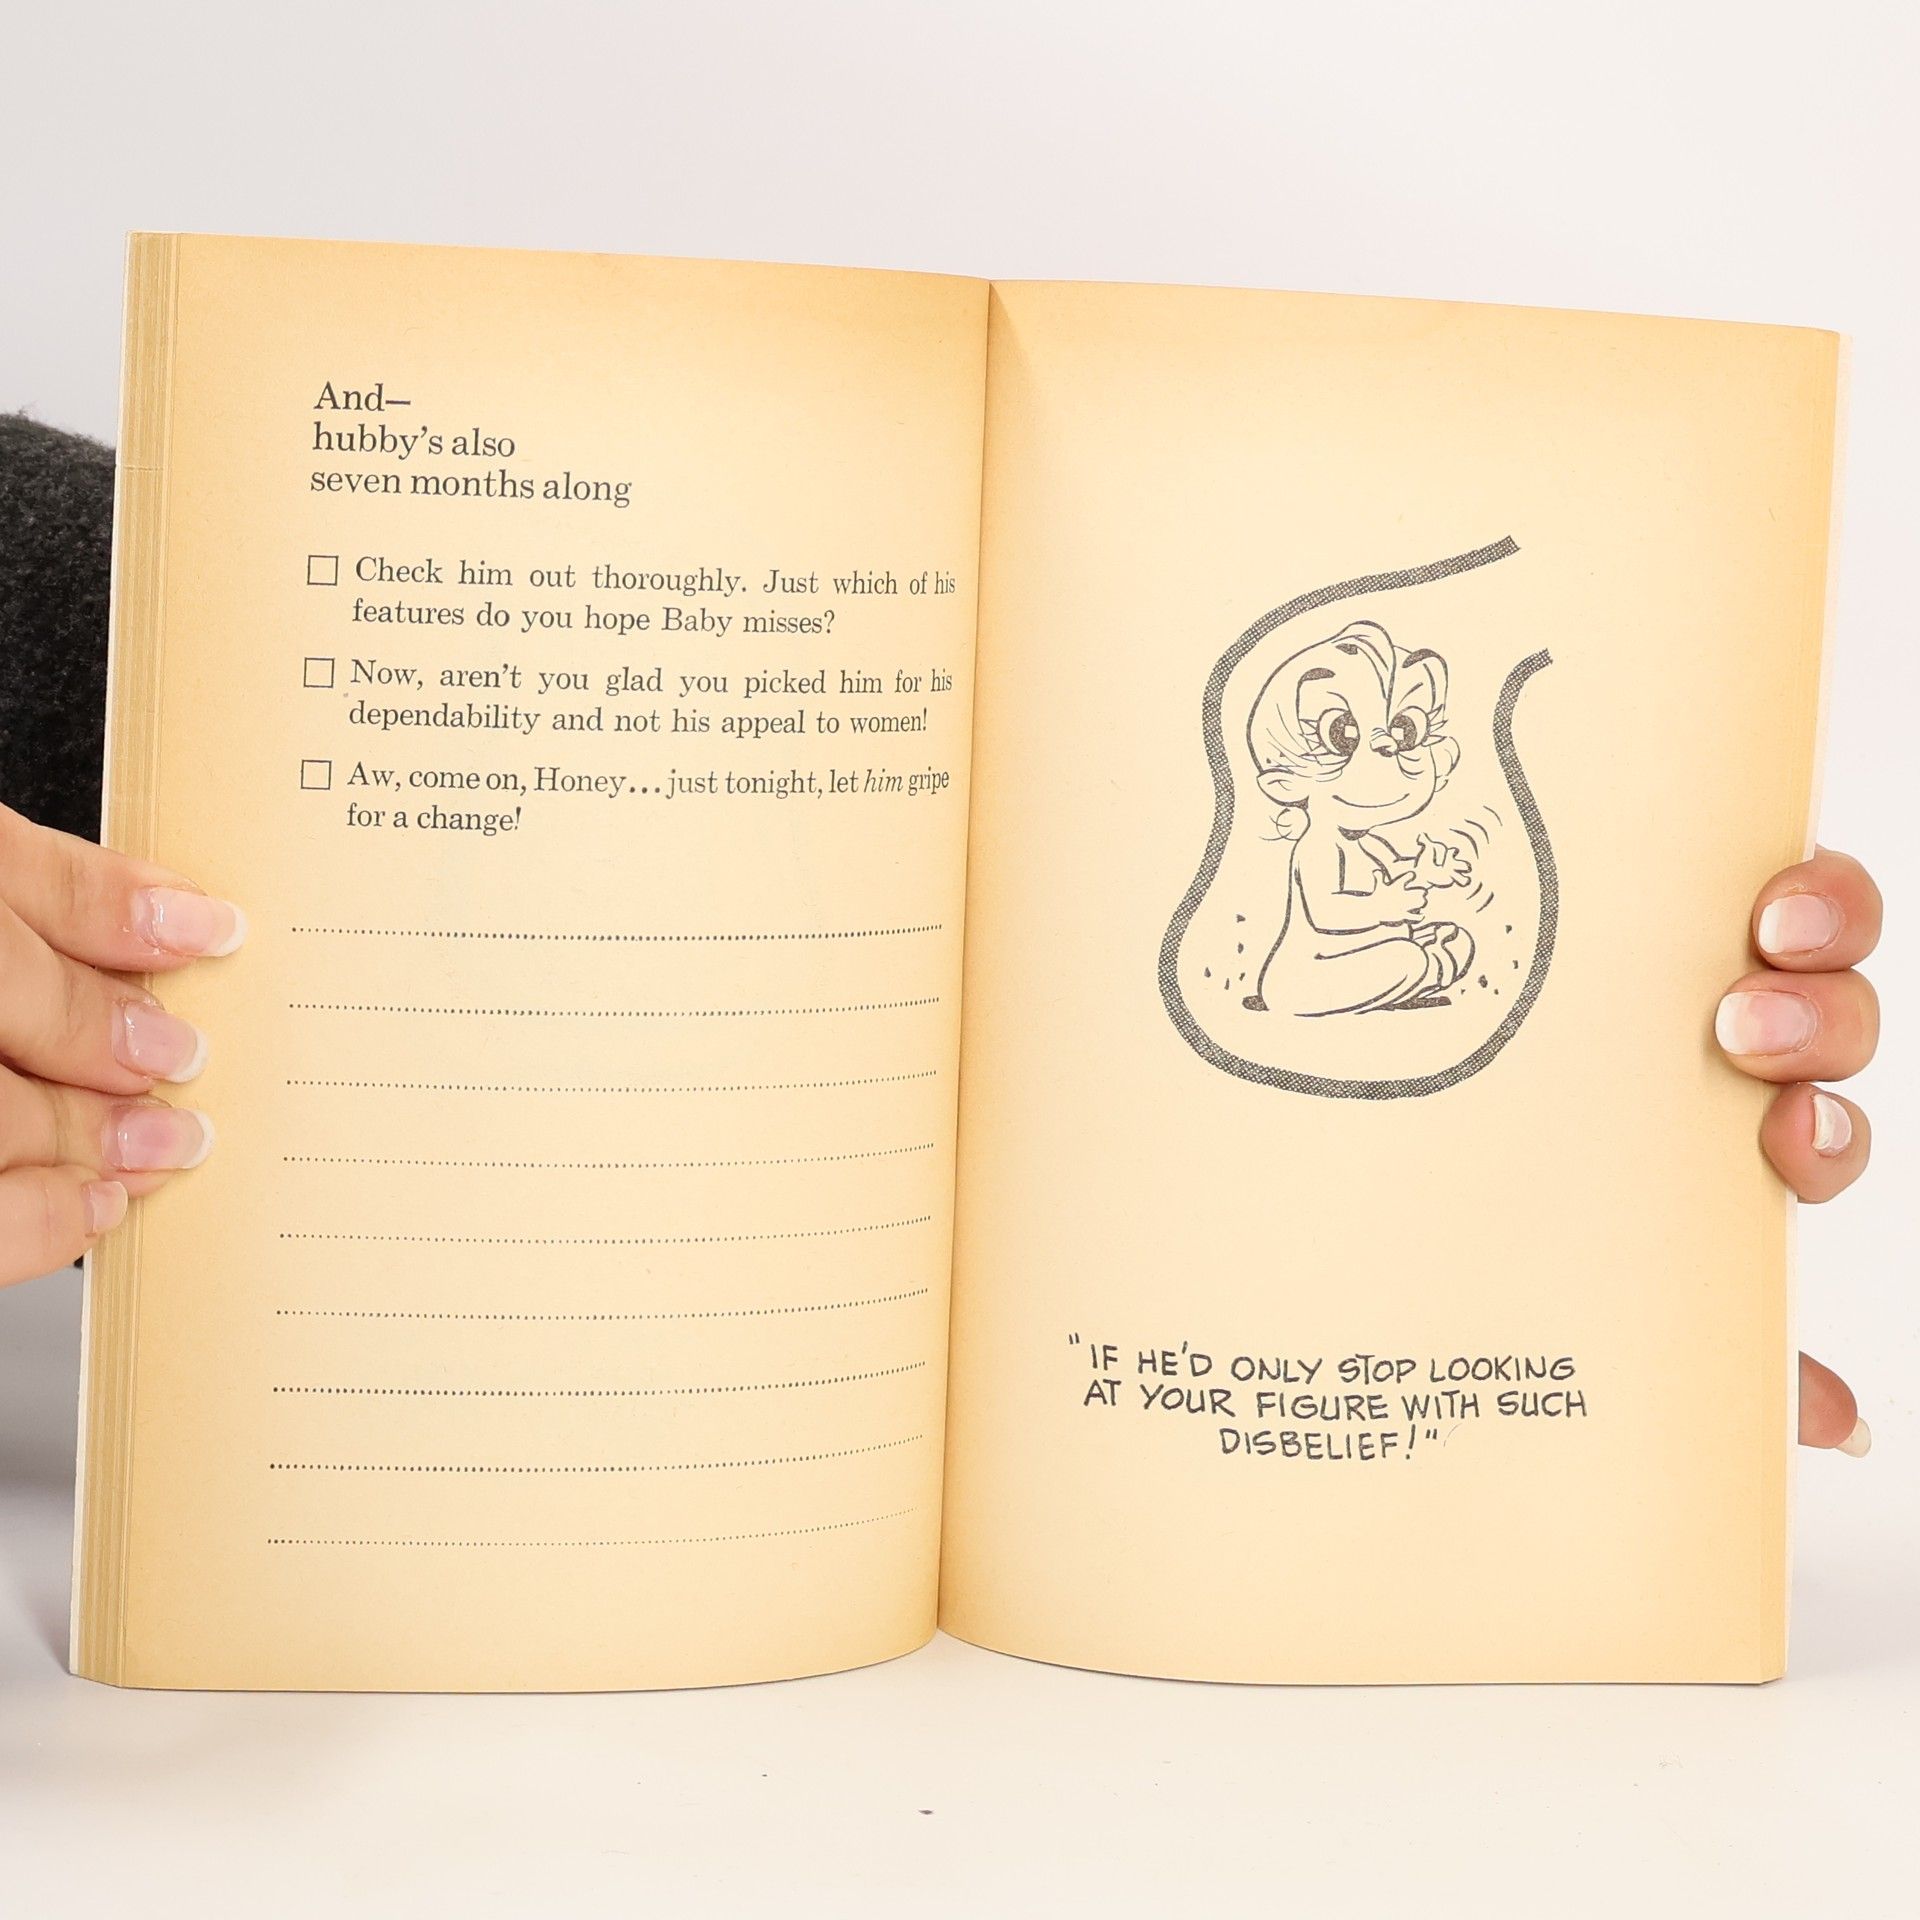 And—
hubby's also
seven months along
Check him out thoroughly. Just which of his
features do you hope Baby misses?
Now, aren't you glad you picked him for his
dependability and not his appeal to women!
Aw, come on, Honey...just tonight, let him gripe
for a change!
"IF HE'D ONLY STOP LOOKING
AT YOUR FIGURE WITH SUCH
DISBELIEF!"